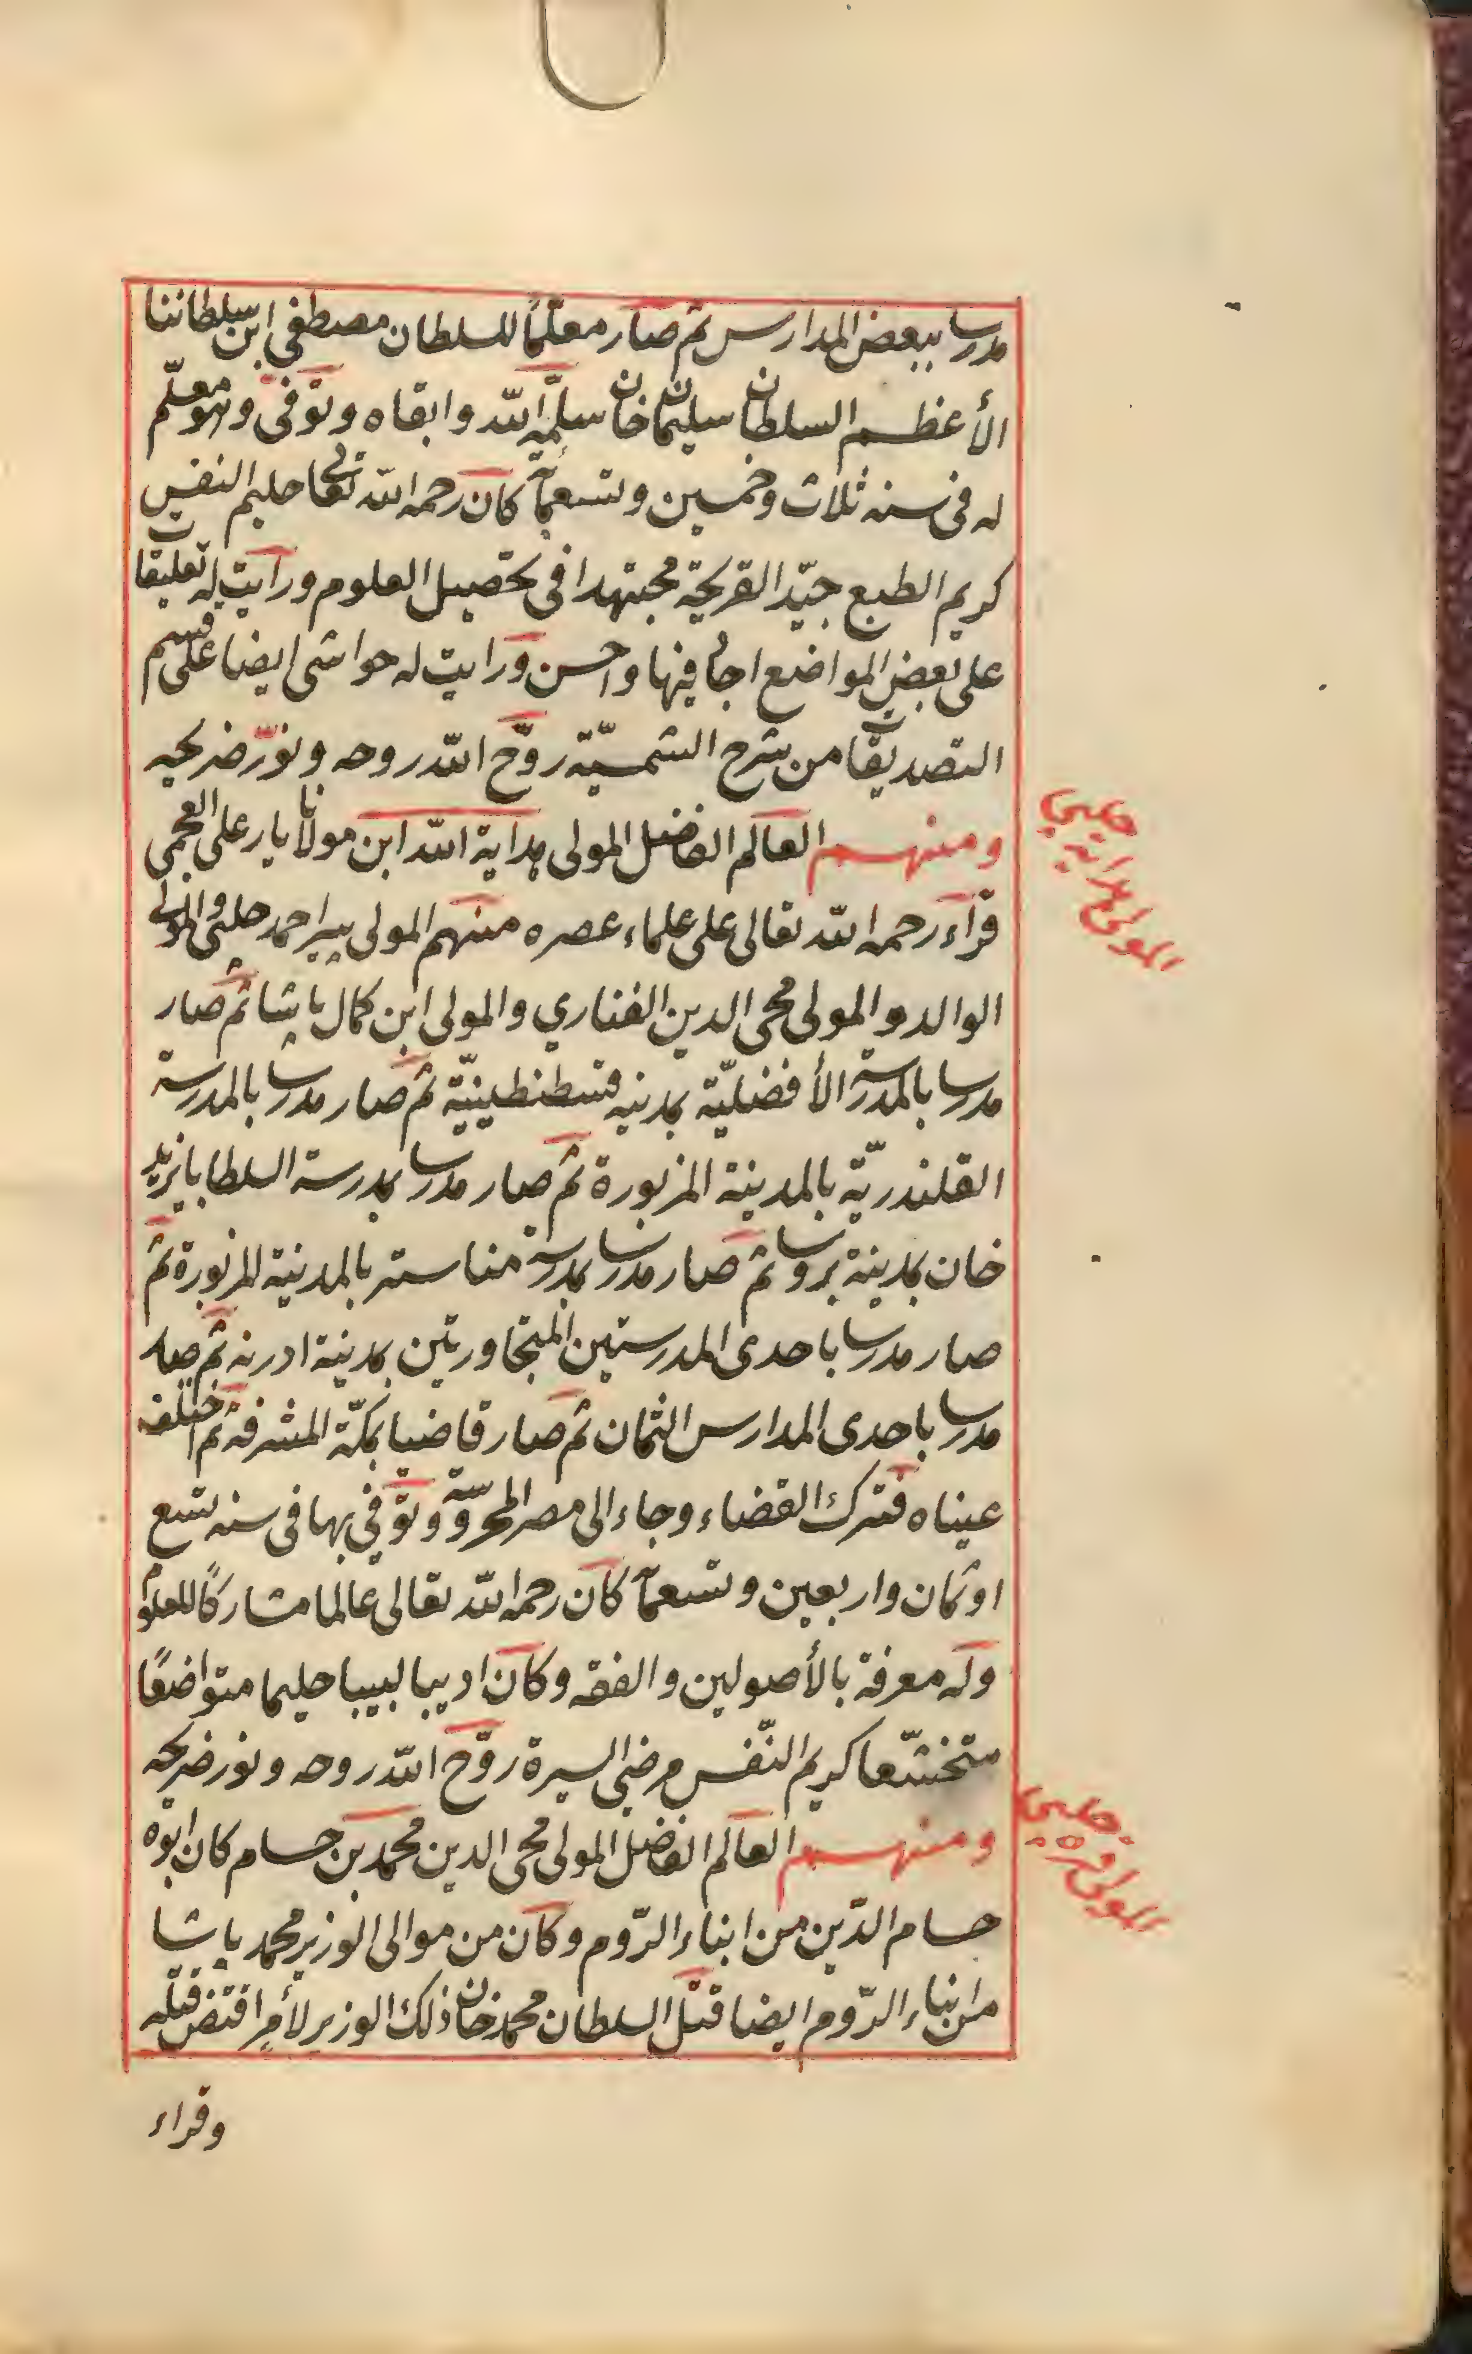 مدرسا ببعض المدارس ثم صار معلّمًا للسلطان مصطفى ابن سلطاننا
الأعظم السلطان سليمان خان سلّمه الله وابقاه وتوفى وهو معلّم
له فى سنه ثلاث وخمسين وتسعمائة كان رحمه الله تعالى حليم النفس
كريم الطبع جيّد القريحة مجتهدا فى تحصيل العلوم ورايت له تعليقات
على بعض المواضع اجاد فيها واحسن ورايت له حواشى ايضا على قسم
التصديقات من شرح الشمسيّة روّح الله روحه ونوّر ضريحه
ومنهم العالم الفاضل المولى هداية الله ابن مولانا يار على العجمى
قراء رحمه الله تعالى على علماء عصره منهم المولى پير احمد چلپى والمولى
الوالد والمولى محى الدين الفناري والمولى ابن كمال پاشا ثم صار
مدرسا بالمدرسة الأفضليّة بمدينه قسطنطينيّة ثم صار مدرسا بالمدرسة
القلندريّة بالمدينة المزبورة ثم صار مدرسا بمدرسة السلطان بايزيد
خان بمدينة بروسا ثم صار مدرسا بمدرسة مناستر بالمدينة المزبورة ثم
صار مدرسا باحدى المدرستين المتجاورتين بمدينة ادرنه ثم صار
مدرسا باحدى المدارس الثمان ثم صار قاضيا بمكّة المشرفة ثم اختلفت
عيناه فترك القضاء وجاء الى مصر المحروسة وتوفّي بها فى سنه تسع
او ثمان واربعين وتسعمائة كان رحمه الله تعالى عالما مشاركًا للعلوم
وله معرفة بالأصولين والفقه وكان اديبا لبيبا حليما متواضعًا
متخشّعا كريم النّفس مرضى السيرة روّح الله روحه ونور ضريحه
ومنهم العالم الفاضل المولى محى الدين محمد بن حسام كان ابوه
حسام الدّين من ابناء الرّوم وكان من موالى الوزير محمد پاشا
من ابناء الرّوم ايضا قتل السلطان محمد خان ذلك الوزير لأمرٍ اقتض قتله
وقراء
المولى هدايه چلبي
المولى قره چلبي